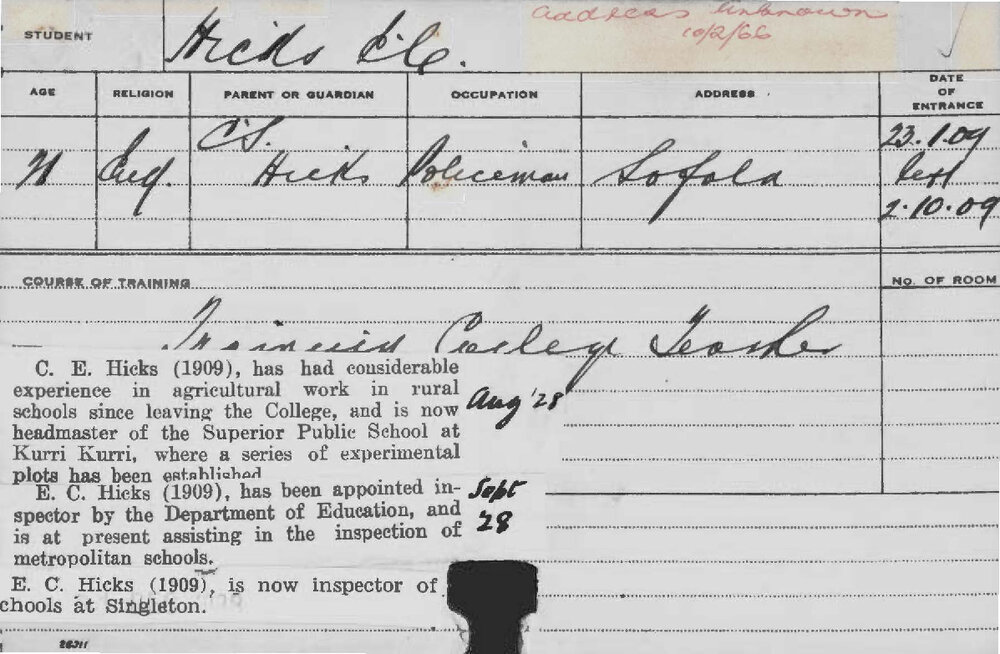 address unknown
10/2/66
STUDENT Hicks E.C.
AGE RELIGION PARENT OR GUARDIAN OCCUPATION ADDRESS DATE OF ENTRANCE
21 Eng. C.S. Hicks Policeman Sofala 23.1.09
left
2.10.09
COURSE OF TRAINING
NO. OF ROOM
Training College Teacher
C. E. Hicks (1909), has had considerable
experience in agricultural work in rural
schools since leaving the College, and is now
headmaster of the Superior Public School at
Kurri Kurri, where a series of experimental
plots has been established
Aug '28
E. C. Hicks (1909), has been appointed in-
spector by the Department of Education, and
is at present assisting in the inspection of
metropolitan schools.
Sept
28
E. C. Hicks (1909), is now inspector of
chools at Singleton.